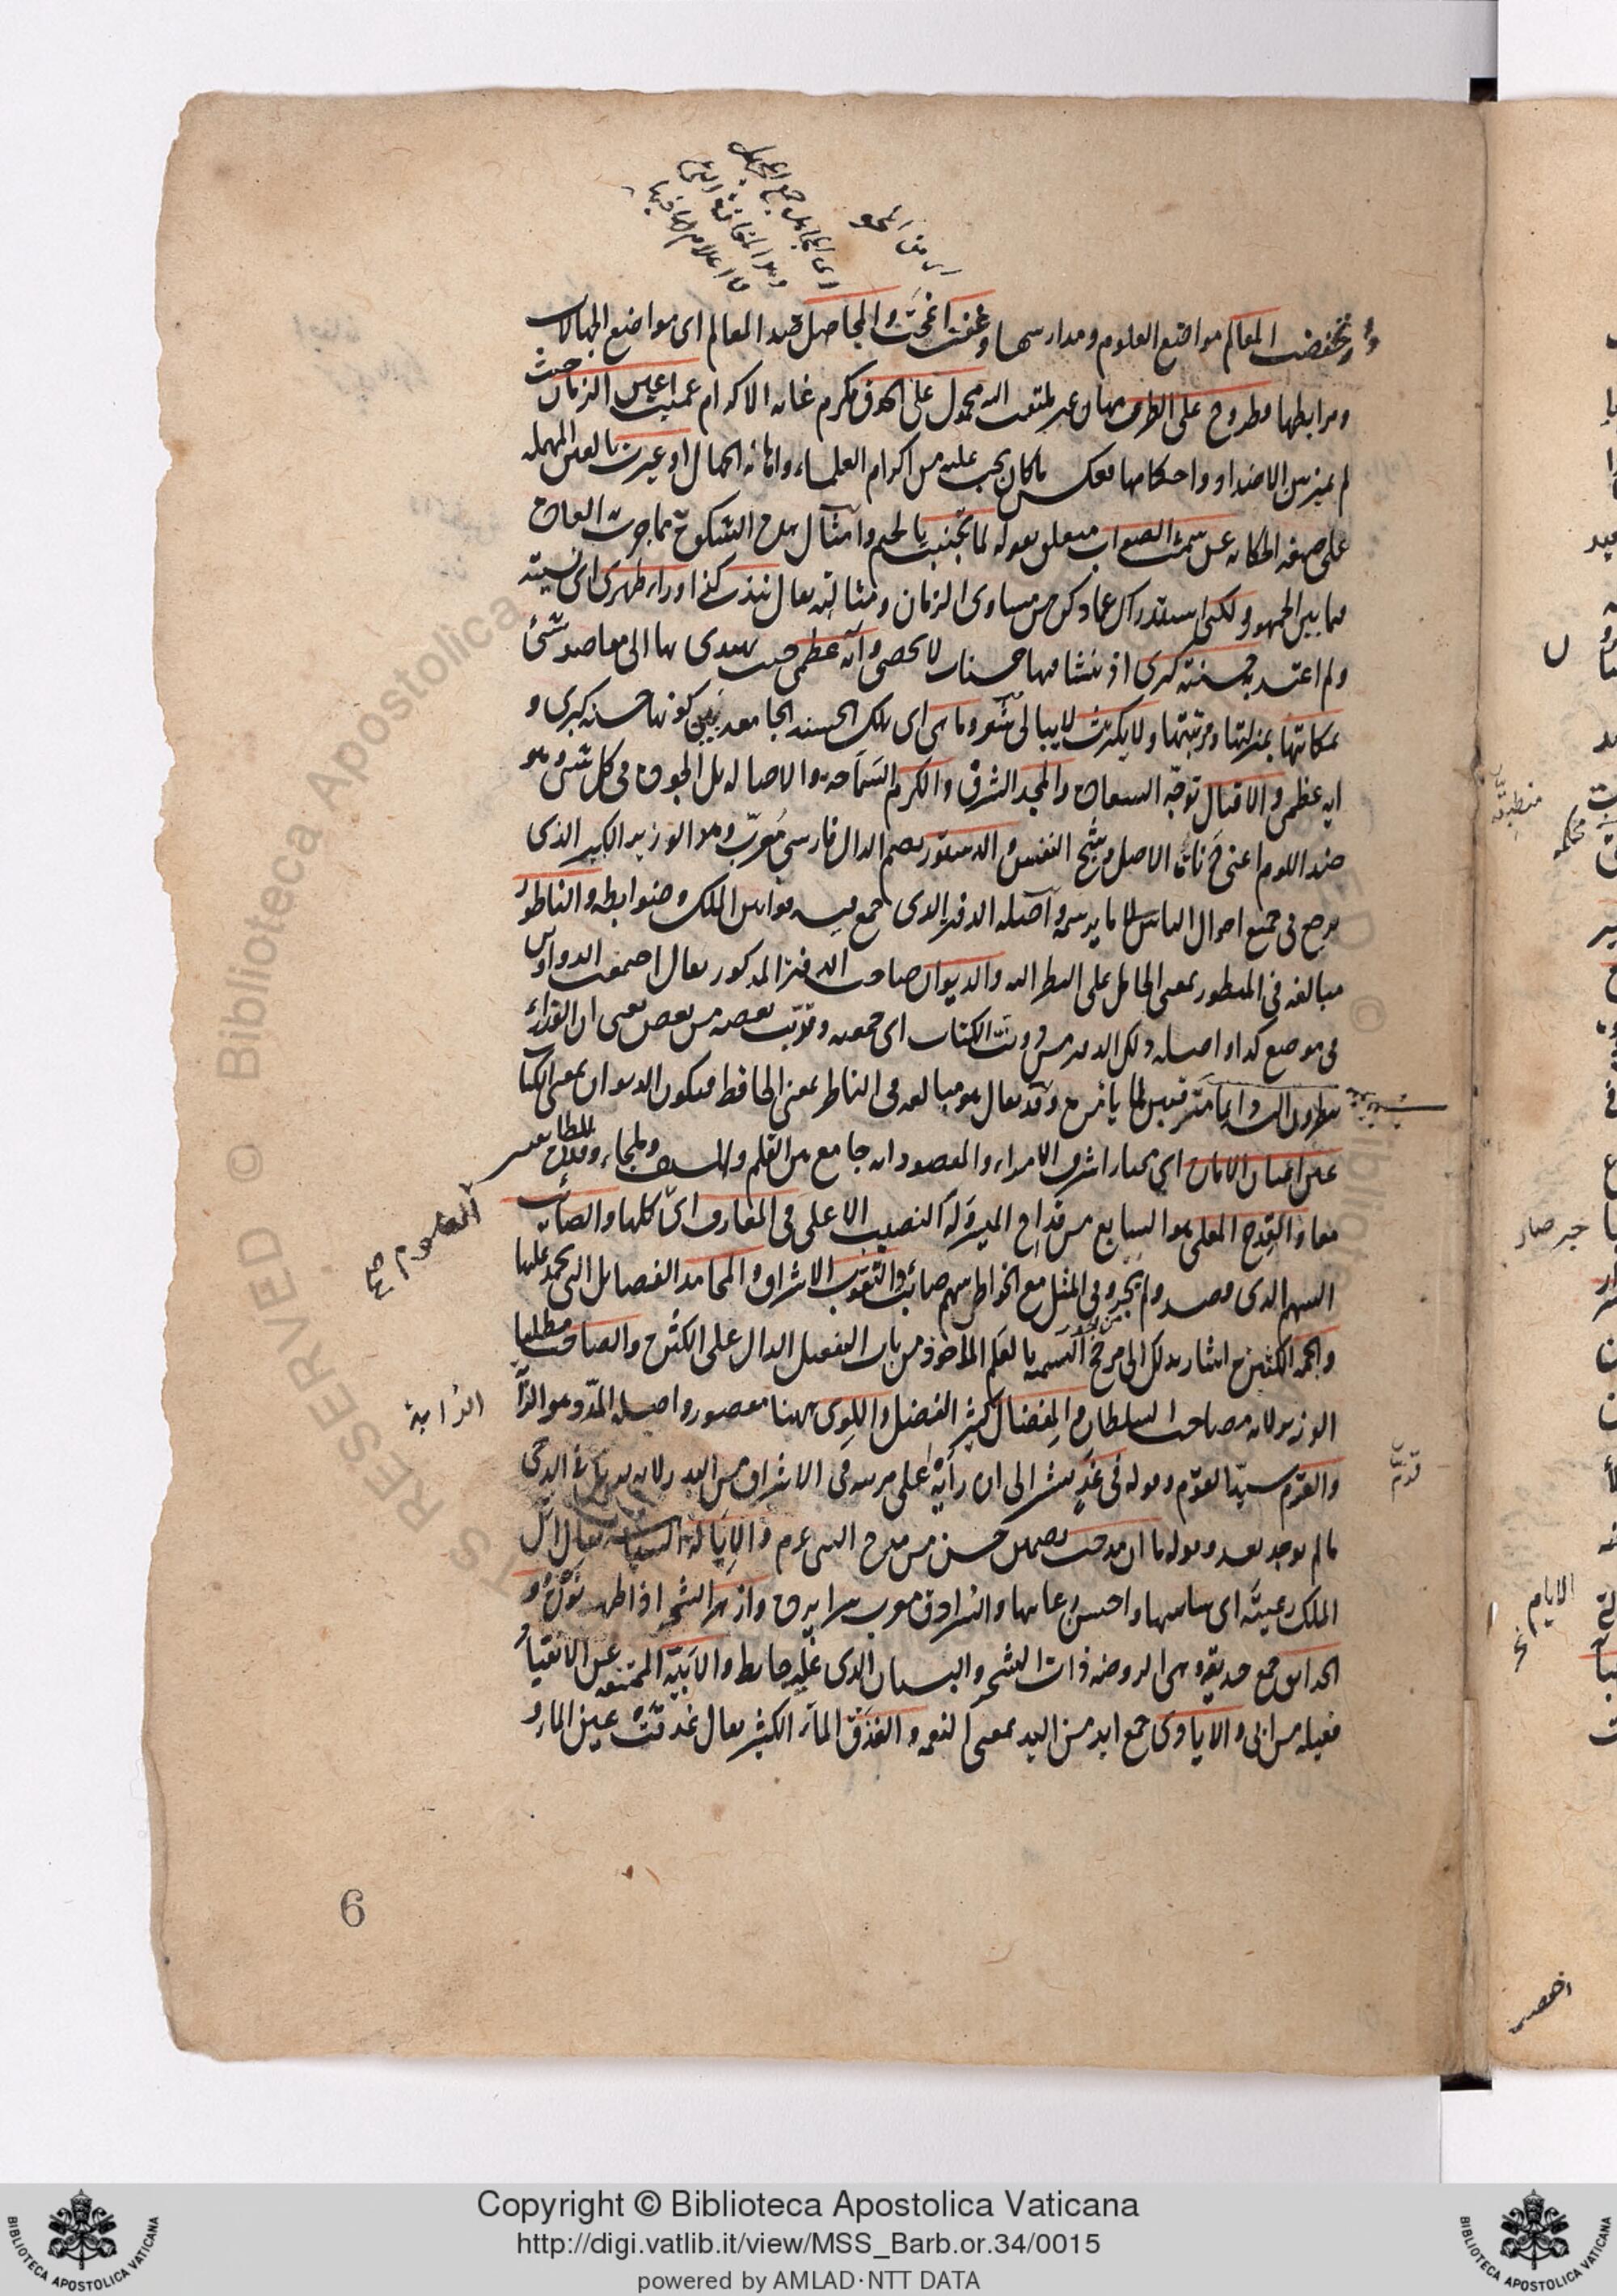 المعالم مواضع العلوم ومدارسها وعفت انمحت والمجاهل ضد المعالم اى مواضع الجهالات
ومرابطها مطروح على الطرق مهان غير ملتفت اليه محمول على الحدق مكرم غاية الاكرام عميت اعين الزمان حيث
لم يميز بين الاضداد واحكامها فعكس ما كان يجب عليه من اكرام العلماء واهانة الجهال او عيرت بالعين المهملة
على صيغة الحكاية عن سمت الصواب متعلق بقوله لما تجنبت بالجيم وامثال هذه الشكوى مما جرت العادة
فيما بين الجمهور ولكنى استدراك عما ذكر من مساوى الزمان ومثالبه يقال نبذت كذا وراء ظهرى اى نسيته
ولم اعتد به حسنة كبرى اذ ينشأ منها حسنات لا تحصى وآية عظمى حيث يهتدى بها الى مقاصد شتى
بمكانتها بمنزلتها ومرتبتها ولا يكترث لا يبالى اى تلك الحسنة الجامعة بين كونها حسنة كبرى و
آية عظمى والاقبال توجه السعادة والمجد الشرف والكرم السماحة والاصالة بل الجودة فى كل شئ وهو
ضد اللوم اعنى دناءة الاصل وشح النفس والدستور بضم الدال فارسى معرب وهو الوزير الكبير الذى
يرجع فى جميع احوال الناس الى ما يرسمه واصله الدفتر الذى جمع فيه قوانين الملك وضوابطه والناطور
مبالغة فى المنظور بمعنى الحامل على النظر اليه والديوان صاحب الدفتر المذكور يقال اجتمعت الدواوين
فى موضع كذا واصله ذلك الدفتر من دونت الكتاب اى جمعته وقربت بعضه من بعض يعنى ان الوزراء
ينظرون اليه دائما مترقبين لما يأمر به وقد يقال هو مبالغة فى الناظر بمعنى الحافظ فيكون الديوان بمعنى الكتاب
عين اعيان الامارة اى مختار اشرف الامراء والمقصود انه جامع بين القلم والسيف
معاذ القدح المعلى هو السابع من قداح الميسر وله النصيب الاعلى فى المعارف اى كلها والصائب
السهم الذى قصد ولم يجر وفى المثل مع الخواطئ سهم صائب والثقوب الاشراق والمحامد الفضائل التى يحمد عليها
والجمة الكثيرة اشار بذلك الى مرجح التسمية بالعلم المأخوذ من باب التفعيل الدال على الكثرة والصاحب مطلقا
الوزير لانه مصاحب السلطان والمفضال كثير الفضل واللوى ههنا مقصور واصله المد وهو الراية
والقرم سيد القوم وقوله فى غد يشير الى ان رأيه اعلى مرتبة فى الاشراق من البدر لانه يدرك فى الدجى
ما لم يوجد بعد وقوله ما ان مدحت تضمين حسن من مدح النبى عم والايالة السياسة يقال آل
الملك رعيته اى ساسها واحسن رعايتها والسرادق معرب سراپرده وازهر الشجر اذا ظهر نوره و
الحدائق جمع حديقة وهى الروضة ذات الشجر والبستان الذى عليه حائط والابية الممتنعة عن الانقياد
فعيلة من ابى والايادى جمع ايد من اليد بمعنى النعمة والغدق الماء الكثير يقال غدقت عين الماء و
الراية
6
Copyright © Biblioteca Apostolica Vaticana
http://digi.vatlib.it/view/MSS_Barb.or.34/0015
powered by AMLAD·NTT DATA
BIBLIOTECA APOSTOLICA VATICANA
BIBLIOTECA APOSTOLICA VATICANA